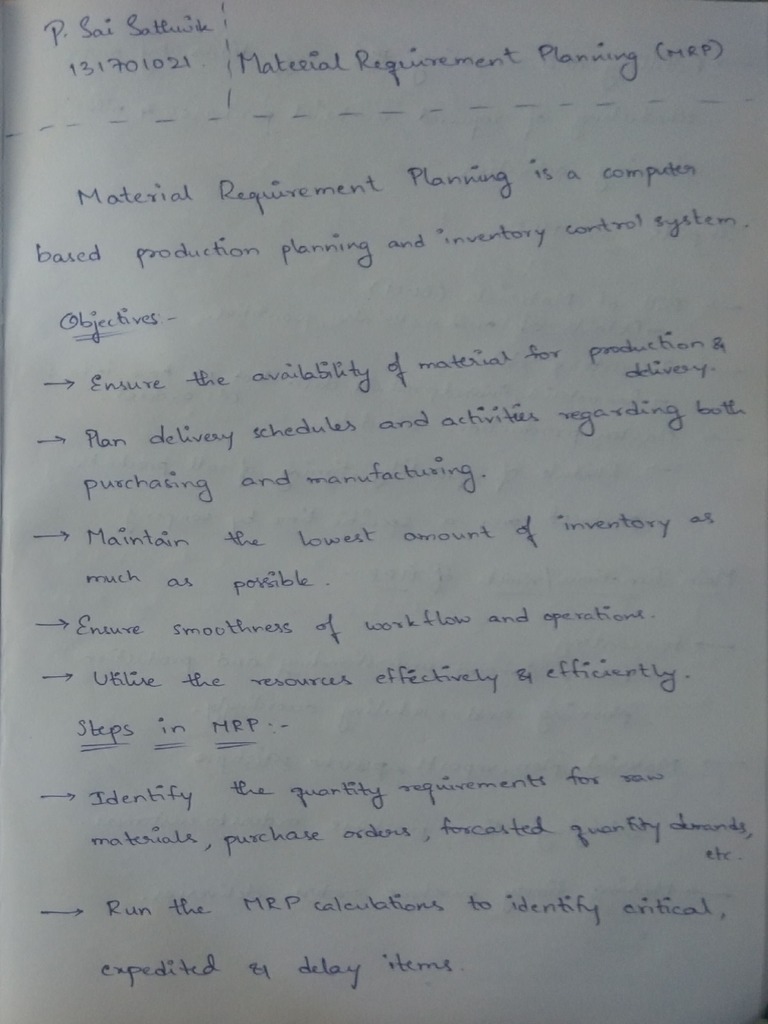 P. Sai Sathwik
131701021.
Material Requirement Planning (MRP)
Material Requirement Planning is a computer
based production planning and inventory control system.
Objectives:-
→ Ensure the availability of material for production &
delivery.
→ Plan delivery schedules and activities regarding both
purchasing and manufacturing.
→ Maintain the lowest amount of inventory as
much as possible.
→ Ensure smoothness of workflow and operations.
→ Utilise the resources effectively & efficiently.
Steps in MRP:-
→ Identify the quantity requirements for raw
materials, purchase orders, forcasted quantity demands,
etc.
→ Run the MRP calculations to identify critical,
expedited & delay items.